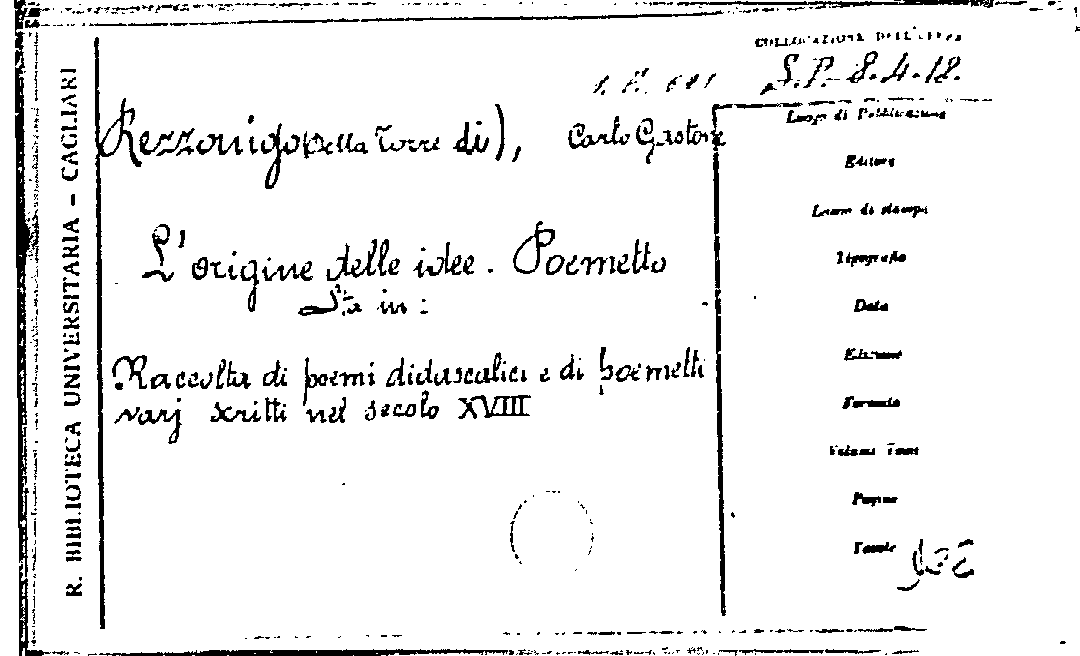 R. BIBLIOTECA UNIVERSITARIA - CAGLIARI
COLLOCAZIONE DELL'OPERA
S.P. 8.4.18.
Rezzonigo (Della Torre di), Carlo Gastone
L'origine delle idee. Poemetto
Sta in:
Raccolta di poemi didascalici e di poemetti
varj scritti nel secolo XVIII
Luogo di Pubblicazione
Editore
Luogo di stampa
Tipografia
Data
Edizione
Formato
Volumi Tomi
Pagine
Tavole